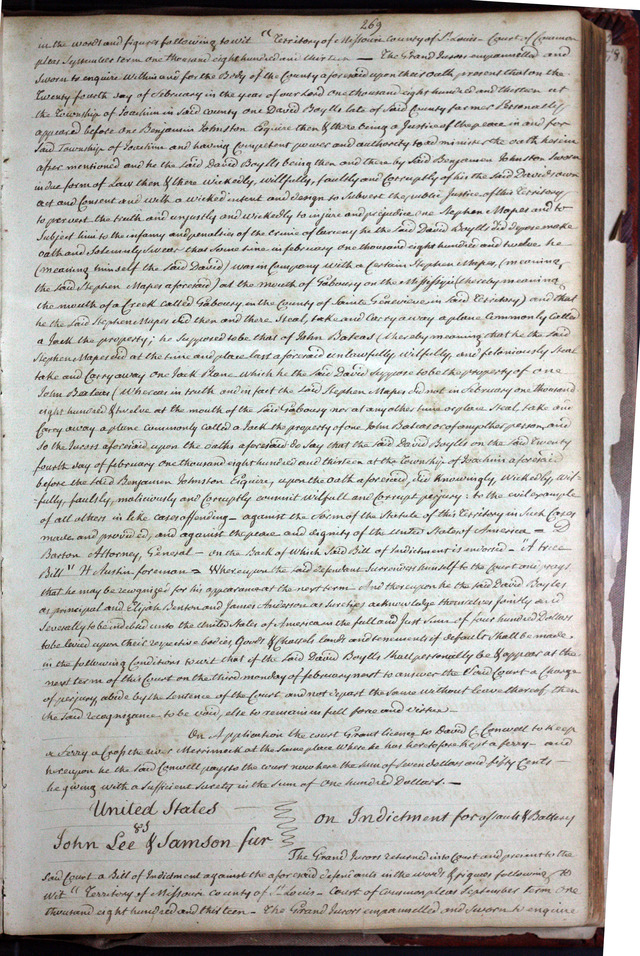 269
in the words and figures following to wit "Territory of Missouri County of St. Louis - Court of Common
pleas September term one thousand eight hundred and thirteen — The Grand Jurors empannelled and
Sworn to enquire within and for the Body of the County aforesaid upon their Oath present that on the
Twenty fourth day of February in the year of our Lord one thousand eight hundred and thirteen at
the Township of Joachim in Said county one David Boylls late of Said County farmer Personally
appeared before one Benjamin Johnston Esquire then & there being a Justice of the peace in and for
Said Township of Joachim and having Competent power and authority to administer the oath herein
after mentioned and he the Said David Boylls being then and there by Said Benjamin Johnston Sworn
in due form of Law then & there Wickedly, Willfully, falsely and Corruptly of his the Said Davids own
act and Consent and with a wicked intent and design to Subvert the public Justice of this Territory
to prevent the truth and unjustly and Wickedly to injure and prejudice one Stephen Mapes and to
Subject him to the infamy and penalties of the Crime of larceny he the Said David Boylls did depose make
oath and Solemnly Swear that Some time in february one thousand eight hundred and twelve he
(meaning himself the Said David) was in Company with a Certain Stephen Mapes, (meaning
the Said Stephen Mapes aforesaid) at the mouth of Gaboury on the Mississippi (thereby meaning
the mouth of a Creek called Gaboury in the County of Sainte Genevieve in Said Territory) and that
he the Said Stephen Mapes did then and there Steal, take and Carry away a plane Commonly Called
a Jack the property; he Supposed to be that of John Bateas (thereby meaning that he the Said
Stephen Mapes did at the time and place last aforesaid unlawfully, Wilfully, and feloniously Steal
take and Carry away One Jack Plane which he the Said David Suppose to be the property of one
John Bateas) Whereas in truth and in fact the Said Stephen Mapes did not in February one thousand
eight hundred & twelve at the mouth of the Said Gaboury nor at any other time or place Steal, take and
Carry away a plane commonly called a Jack the property of one John Bateas or of any other person, and
So the Jurors aforesaid upon the oaths aforesaid do Say that the Said David Boylls on the Said twenty
fourth day of February one thousand eight hundred and thirteen at the Township of Joachim aforesaid
before the Said Benjamin Johnston Esquire, upon the Oath aforesaid, did Knowingly, Wickedly, Wil-
-fully, falsely, maliciously and Corruptly commit Wilfull and Corrupt perjury: to the evil example
of all others in like cases offending - against the form of the Statute of this Territory in Such Cases
made and provided, and against the peace and dignity of the United States of America — D
Barton Attorney, General - on the Back of Which Said Bill of Indictment is endorsed - "A true
Bill" H Austin foreman — Whereupon the Said defendant Surrenders himself to the Court and prays
that he may be recognized for his appearance at the next term - And thereupon he the Said David Boylls
as principal and Elijah Benton and James Anderson as Sureties acknowledge themselves jointly and
Severally to be indebted unto the United States of America in the full and Just Sum of four hundred Dollars
to be levied upon their respective bodies, Goods & Chattels lands and tenements if default Shall be made.
in the following Conditions to wit that if the Said David Boylls Shall personally be & appear at the
next term of this Court on the third monday of february next to answer the Said Court a Charge
of perjury, abide by the Sentence of the Court, and not depart the Same without leave thereof, then
the Said recognizance to be void, else to remain in full force and virtue —
On Application the court Grant licence to David C. Conwell to Keep
a Ferry a Cross the river Merrimack at the Same place Where he has heretofore kept a ferry - and
hereupon he the Said Conwell pays to the court now here the Sum of Seven dollars and fifty Cents —
he giving with a Sufficient Surety in the Sum of One hundred Dollars. —
United States
vs
on Indictment for assault & Battery
John Lee & Samson fur
The Grand Jurors returned into Court and present to the
Said Court a Bill of Indictment against the aforesaid defendants in the words & figures following to
Wit "Territory of Missouri county of St. Louis - Court of Common pleas September term one
thousand eight hundred and thirteen - The Grand Jurors empannelled and Sworn to enquire